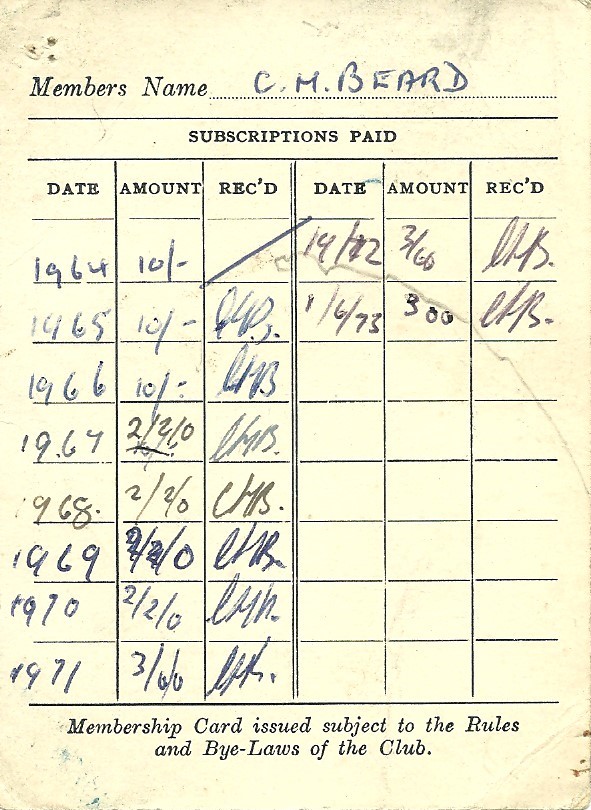 Members Name C. M. BEARD
SUBSCRIPTIONS PAID
DATE AMOUNT REC'D DATE AMOUNT REC'D
1964 10/- 19/ 3/00 CMB.
1965 10/- CMB. 1/6/73 3 00 CMB.
1966 10/- CMB
1967 2/2/0 CMB.
1968. 2/2/0 CMB.
1969 2/2/0 CMB.
1970 2/2/0 CMB.
1971 3/0/0 CMB.
Membership Card issued subject to the Rules
and Bye-Laws of the Club.